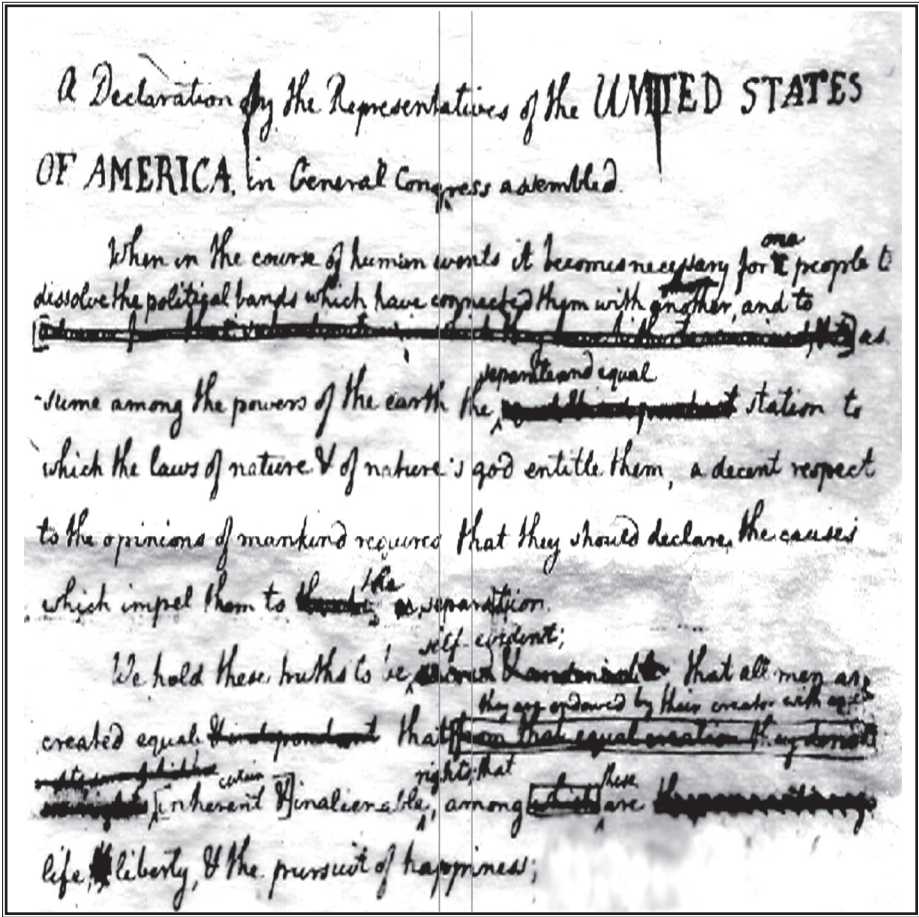 A Declaration by the Representatives of the UNITED STATES
OF AMERICA, in General Congress assembled.
When in the course of human events it becomes necessary for one people to
dissolve the political bands which have connected them with another, and to
as
-sume among the powers of the earth the separate and equal station to
which the laws of nature & of nature's god entitle them, a decent respect
to the opinions of mankind requires that they should declare the causes
which impel them to the separation.
self-evident;
We hold these truths to be that all men are
they are endowed by their creator with
created equal & independent that from that equal creation they
certain rights; that these
[inherent &] inalienable, among which are
life, liberty, & the pursuit of happiness;